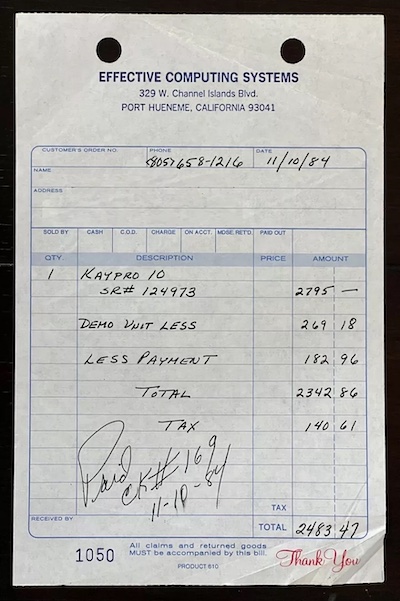 EFFECTIVE COMPUTING SYSTEMS
329 W. Channel Islands Blvd.
PORT HUENEME, CALIFORNIA 93041
CUSTOMER'S ORDER NO. PHONE (805) 658-1216 DATE 11/10/84
NAME
ADDRESS
SOLD BY CASH C.O.D. CHARGE ON ACCT. MDSE. RET'D. PAID OUT
QTY. DESCRIPTION PRICE AMOUNT
1 KAYPRO 10
SR# 124973 2795 —
DEMO UNIT LESS 269 18
LESS PAYMENT 182 96
TOTAL 2342 86
TAX 140 61
Paid
CK# 169
11-10-84
TAX
RECEIVED BY TOTAL 2483 47
1050 All claims and returned goods
MUST be accompanied by this bill. Thank You
PRODUCT 610